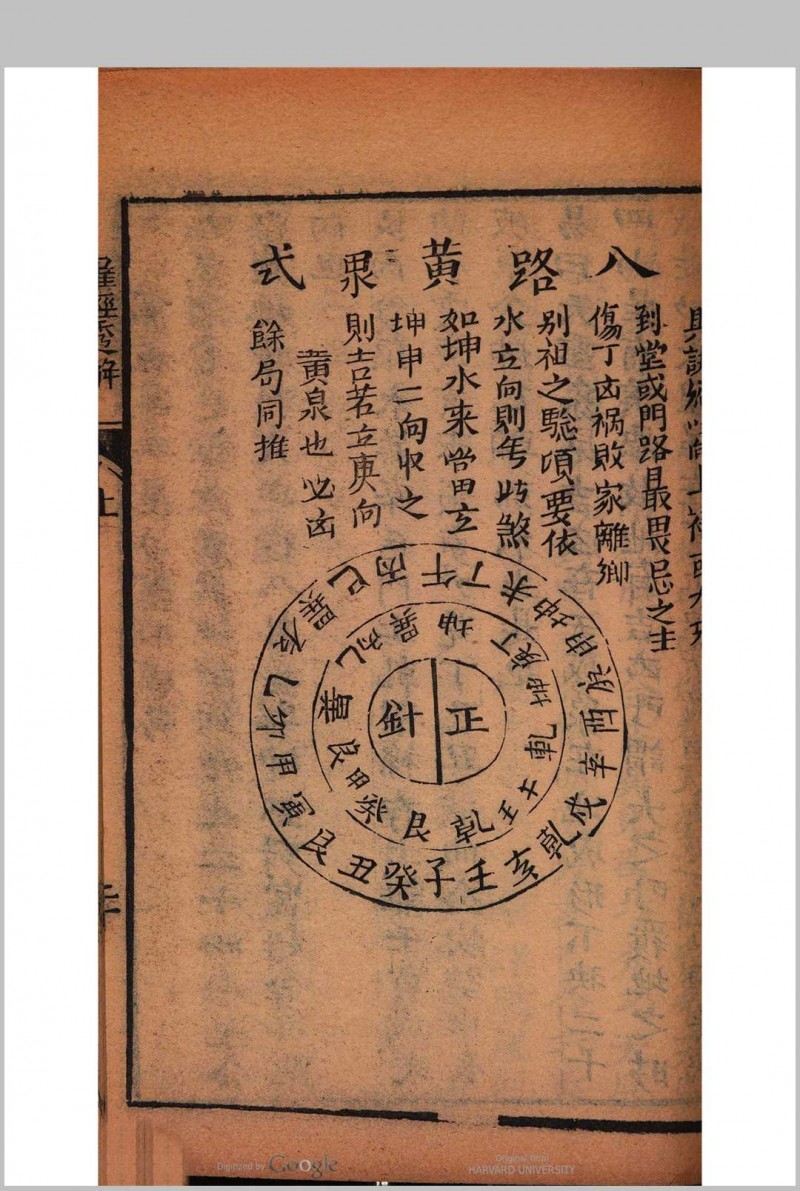 八路黃泉式
到堂或門路最畏忌之主
傷丁凶禍敗家離鄉
別祖之驗須要依
水立向則無此煞
如坤水來當立
坤申二向收之
則吉若立庚向
黃泉也必凶
餘局同推
羅經透解
上
正針
坤 庚丁 坤 乾 辛壬 乾 艮 癸甲 艮 巽 乙丙 巽
午丁未坤申庚酉辛戌乾亥壬子癸丑艮寅甲卯乙辰巽巳丙
Digitized by Google
Original from
HARVARD UNIVERSITY